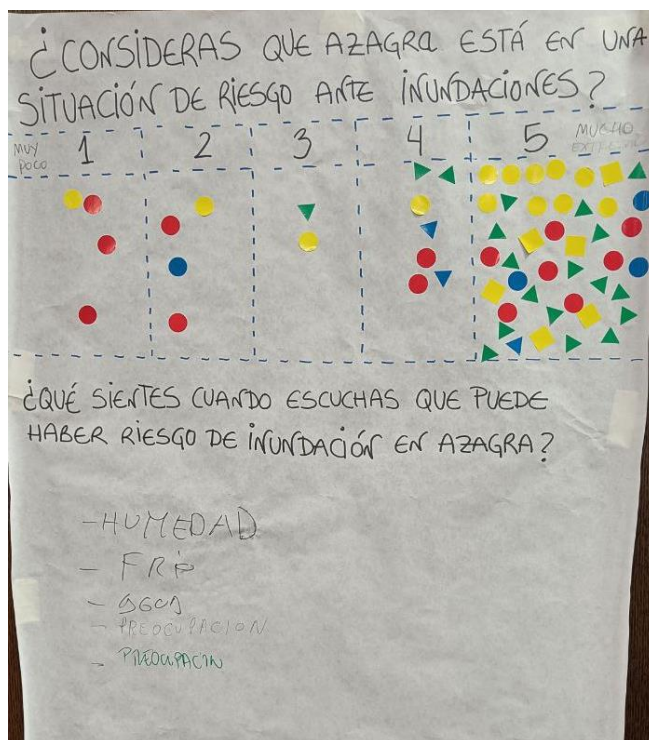 ¿CONSIDERAS QUE AZAGRA ESTÁ EN UNA
SITUACIÓN DE RIESGO ANTE INUNDACIONES?
MUY POCO 1 2 3 4 5 MUCHO
¿QUÉ SIENTES CUANDO ESCUCHAS QUE PUEDE
HABER RIESGO DE INUNDACIÓN EN AZAGRA?
- HUMEDAD
- FRIO
- AGUA
- PREOCUPACION
- PREOCUPACIN